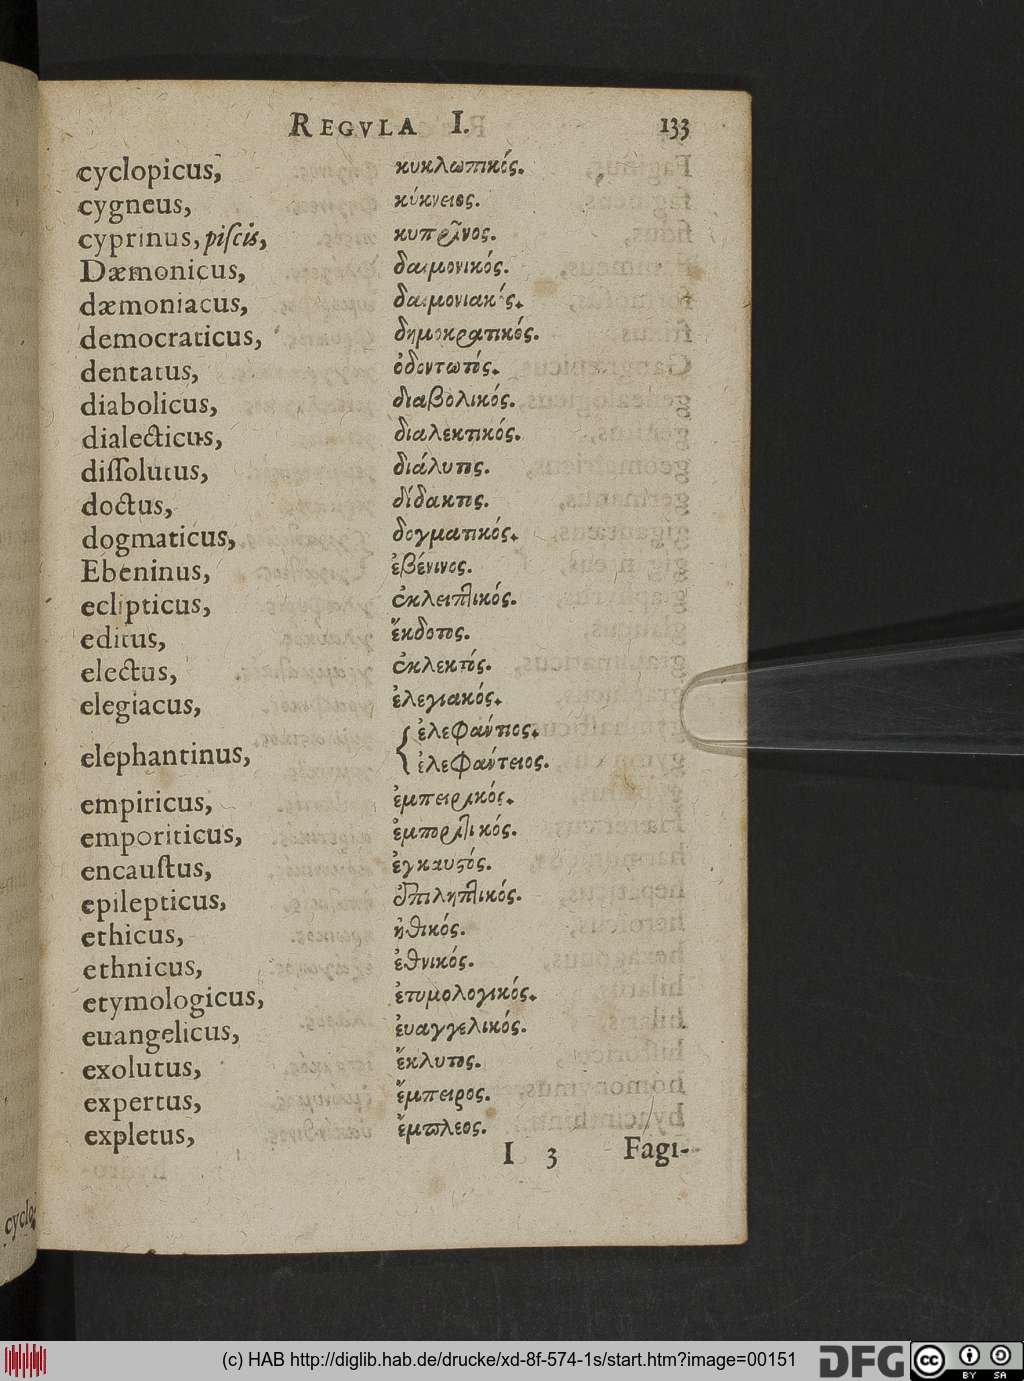 REGVLA I. 133
cyclopicus, κυκλωπικός.
cygneus, κύκνειος.
cyprinus, piſcis, κυπρῖνος.
Dæmonicus, δαιμονικός.
dæmoniacus, δαιμονιακός.
democraticus, δημοκρατικός.
dentatus, ὀδοντωτός.
diabolicus, διαβολικός.
dialecticus, διαλεκτικός.
diſſolutus, διάλυτος.
doctus, δίδακτος.
dogmaticus, δογματικός.
Ebeninus, ἐβένινος.
eclipticus, ἐκλειπτικός.
editus, ἔκδοτος.
electus, ἐκλεκτός.
elegiacus, ἐλεγιακός.
elephantinus, { ἐλεφάντινος.
ἐλεφάντειος.
empiricus, ἐμπειρικός.
emporiticus, ἐμποριτικός.
encauſtus, ἐγκαυϛός.
epilepticus, ἐπιληπτικός.
ethicus, ἠθικός.
ethnicus, ἐθνικός.
etymologicus, ἐτυμολογικός.
euangelicus, ἐυαγγελικός.
exolutus, ἔκλυτος.
expertus, ἔμπειρος.
expletus, ἔμπλεος.
I 3 Fagi-
cyclo-
(c) HAB http://diglib.hab.de/drucke/xd-8f-574-1s/start.htm?image=00151
DFG
cc BY SA